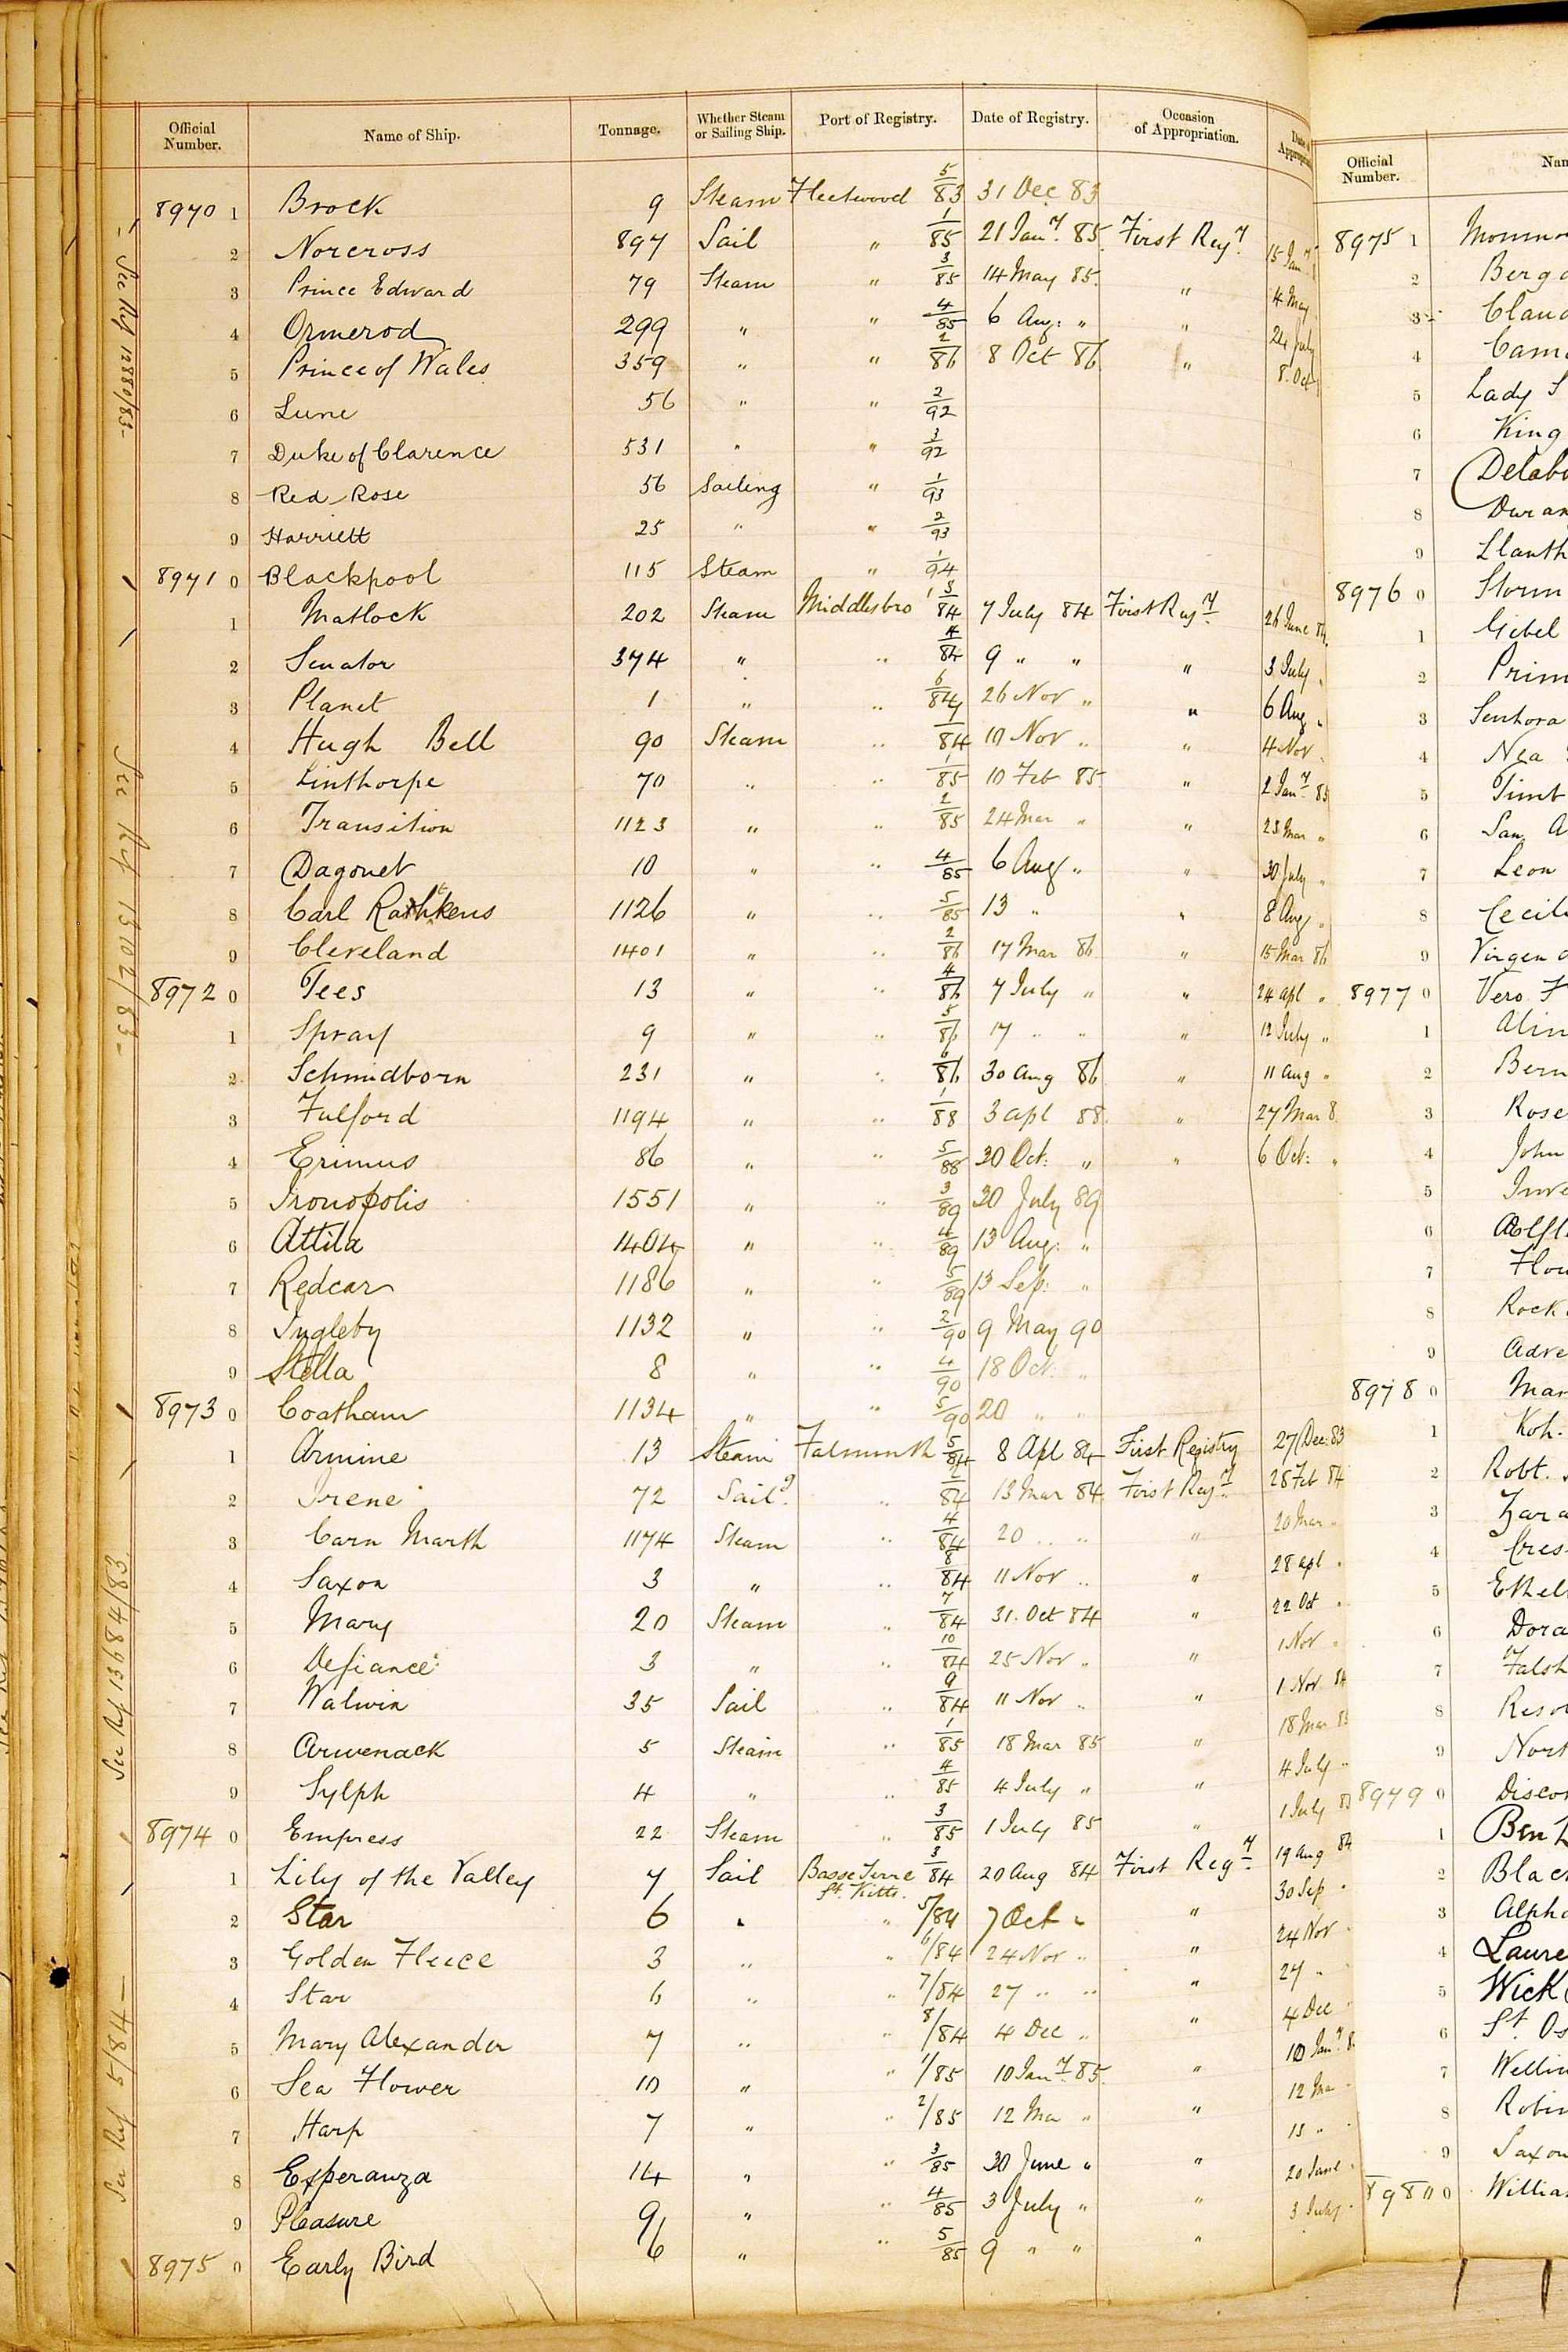 Official Number. Name of Ship. Tonnage. Whether Steam or Sailing Ship. Port of Registry. Date of Registry. Occasion of Appropriation.
8970 1 Brock 9 Steam Fleetwood 5/83 31 Dec 83
2 Norcross 897 Sail " 1/85 21 Jany. 85 First Regy. 15 Jany
3 Prince Edward 79 Steam " 3/85 14 May 85. " 4 May
4 Ormerod 299 " " 4/85 6 Aug: " " 24 July
5 Prince of Wales 359 " " 2/86 8 Oct 86 " 8 Oct
6 Lune 56 " " 2/92
7 Duke of Clarence 531 " " 3/92
8 Red Rose 56 Sailing " 1/93
9 Harriett 25 " " 2/93
8971 0 Blackpool 115 Steam " 1/94
1 Matlock 202 Steam Middlesbro' 3/84 7 July 84 First Regy. 26 June 84
2 Senator 374 " " 4/84 9 " " " 3 July "
3 Planet 1 " " 6/84 26 Nov " " 6 Aug "
4 Hugh Bell 90 Steam " 7/84 10 Nov " " 4 Nov "
5 Linthorpe 70 " " 1/85 10 Feb 85 " 2 Jany. 85
6 Transition 1123 " " 2/85 24 Mar " " 23 Mar "
7 Dagonet 10 " " 4/85 6 Aug " " 30 July "
8 Carl " 1126 " " 5/85 13 " " 8 Aug "
9 Cleveland 1401 " " 2/86 17 Mar 86 " 15 Mar 86
8972 0 Tees 13 " " 4/86 7 July " " 24 Apl "
1 Spray 9 " " 5/86 17 " " " 12 July "
2 Schmidborn 231 " " 6/86 30 Aug 86 " 11 Aug "
3 Fulford 1194 " " 1/88 3 Apl 88. " 27 Mar 8
4 Erimus 86 " " 5/88 30 Oct: " " 6 Oct: "
5 Ironopolis 1551 " " 3/89 30 July 89
6 Attila 1404 " " 4/89 13 Aug: "
7 Redcar 1186 " " 5/89 13 Sep: "
8 Ingleby 1132 " " 2/90 9 May 90
9 Stella 8 " " 4/90 18 Oct: "
8973 0 Coatham 1134 " " 5/90 20 " "
1 Armine 13 Steam Falmouth 5/84 8 Apl 84 First Registry 27 Dec: 83
2 Irene 72 Sailg. " 2/84 13 Mar 84 First Regy. 28 Feb 84
3 Carn Marth 1174 Steam " 4/84 20 " " " 20 Mar "
4 Saxon 3 " " 8/84 11 Nov " " 28 Apl "
5 Mary 20 Steam " 7/84 31 Oct 84 " 22 Oct "
6 Defiance 3 " " 10/84 25 Nov " " 1 Nov "
7 Walwin 35 Sail " 9/84 11 Nov " " 1 Nov 84
8 Arwenack 5 Steam " 1/85 18 Mar 85 " 18 Mar 85
9 Sylph 4 " " 4/85 4 July " " 4 July "
8974 0 Empress 22 Steam " 3/85 1 July 85 " 1 July 85
1 Lily of the Valley 7 Sail Basse Terre St. Kitts. 3/84 20 Aug 84 First Regy. 19 Aug 84
2 Star 6 " " 5/84 7 Oct " " 30 Sep "
3 Golden Fleece 3 " " 6/84 24 Nov " " 24 Nov "
4 Star 6 " " 7/84 27 " " " 27 "
5 Mary Alexander 7 " " 8/84 4 Dec " " 4 Dec "
6 Sea Flower 10 " " 1/85 10 Jany. 85. " 10 Jany. 8
7 Harp 7 " " 2/85 12 Mar " " 12 Mar "
8 Esperanza 14 " " 3/85 30 June " " 13 "
9 Pleasure 9 " " 4/85 3 July " " 20 June "
8975 0 Early Bird 6 " " 5/85 9 " " " 3 July "
See Ref 12880/83-
See Ref 13102/83-
See Ref 13684/83
See Ref 5/84-
Official Number. Nam
8975 1
2 Berg
3
4 Cam
5 Lady S
6 King
7 Delab
8 Duran
9 Llanth
8976 0 Storm
1 Gebel
2 Prim
3 Senhora
4 Nea
5 Timb
6 San A
7 Leon
8 Cecil
9 Virgen d
8977 0 Vero F
1 Alin
2 Bern
3 Rose
4 John
5 Inve
6
7 Flow
8 Rock
9 Adve
8978 0 Mar
1 Koh.
2 Robt.
3 Zara
4 Cres
5 Ethel
6 Dora
7 Falsh
8 Reso
9 Nort
8979 0 Discov
1 Ben
2 Blac
3 Alpha
4 Laure
5 Wick
6 St. Os
7 Wellin
8 Robin
9 Saxon
8980 0 William